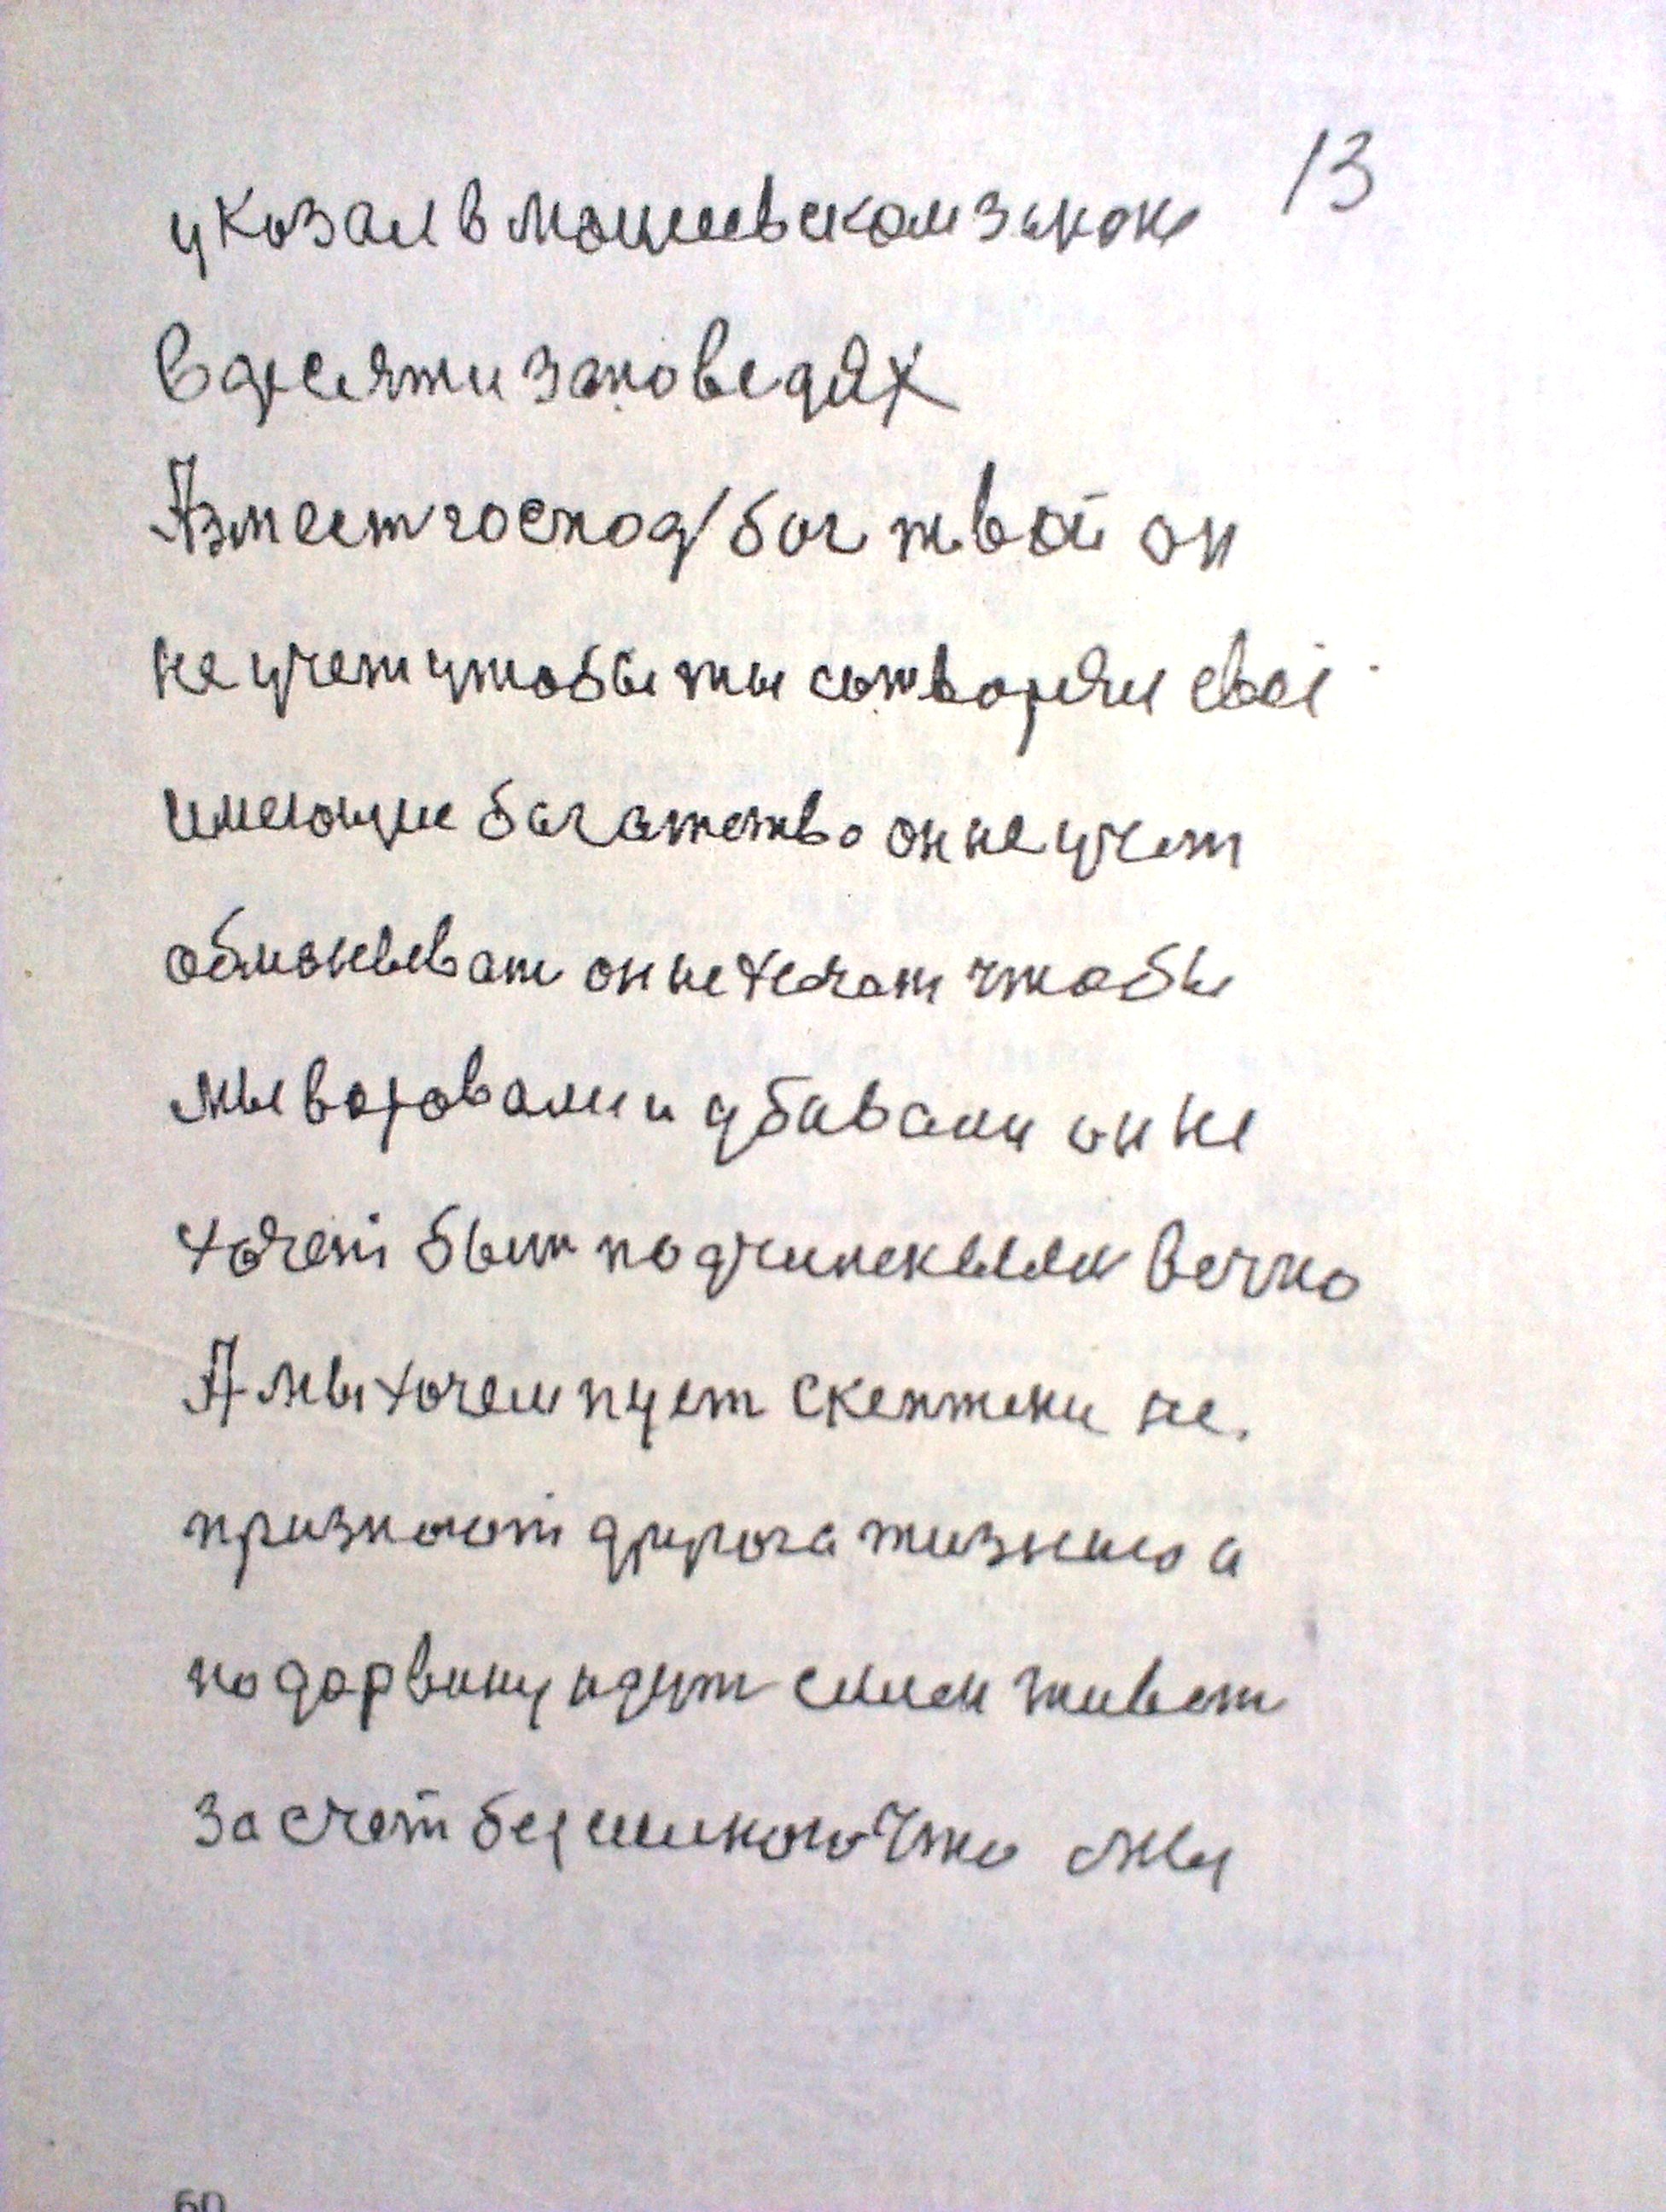 13
указал в моисеевском законе
в десяти заповедях
Азм ест господ бог твой он
не учет чтобы ты сотворял свое
имеющие богатство он не учет
обмоневат он не хочет чтобы
мы воровали и убивали он не
хочет быт подчиненым вечно
А мы хочем пуст скептики не
признают друрога жизнию а
по дарвину идут силен живет
за счет безсильного Что мы
60